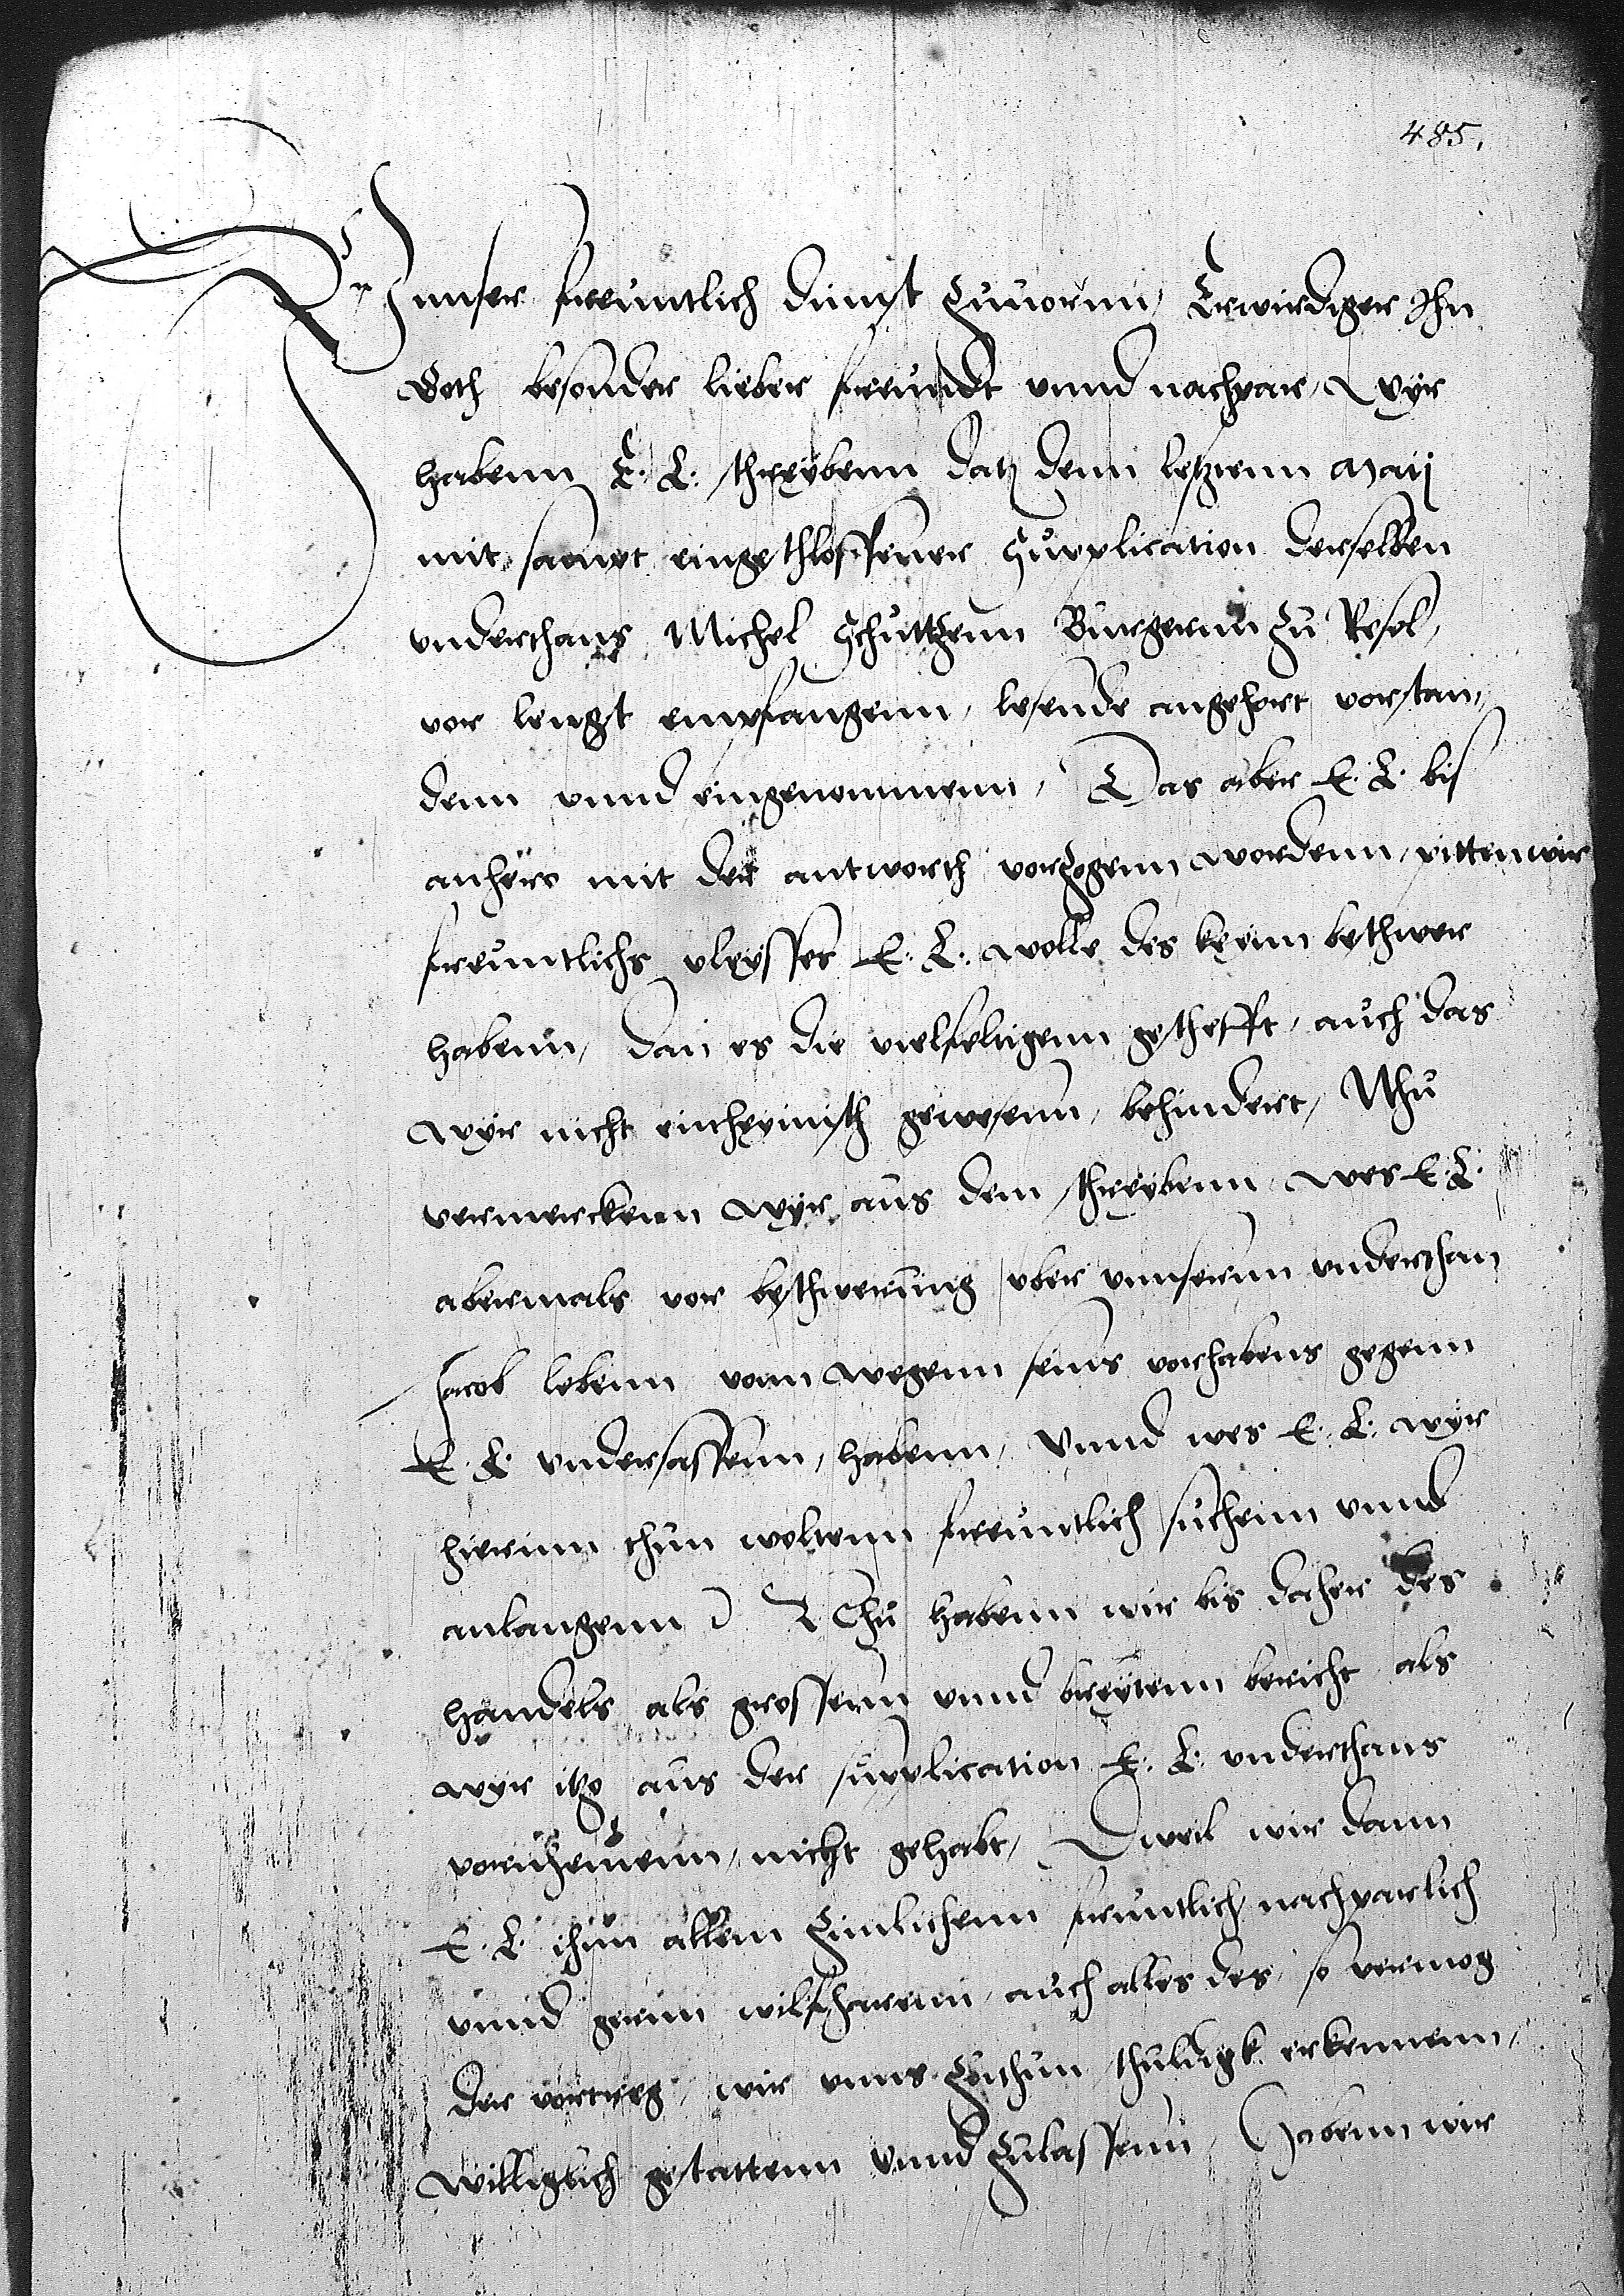 485.
unser freuntlich dinst zuuornn, Erwirdiger Ihn
Goth besonder lieber freundt vnnd nachpar, Wyr
habenn E. L. schreybenn datz denn letztenn Maij
mit sampt eingeschlossener Supplication derselben
vnderthans Michel Schuttzenn Burgernn zu Resel,
vor lengst empfangenn, lesende angehort vorstan,,
denn vnnd eingenommenn, Das aber E. L. bis
anhero mit der antworth vorzogenn wordenn, pitten wir
freuntlichs vleysses E. L. wolle des keynn beschwer
habenn, dan es die vielfeltigenn gescheft, auch das
wyr nicht einheymisch gewesenn, behindert, Nhu
vermerckenn wyr aus dem schreybenn wes E. L.
abermals vor beschwerung vber vnnsernn vnderthan
Jacob lebenn vonn wegenn seins vorhabens gegenn
E. L. vndersassenn, habenn, Vnnd wes E. L. wyr
hierinn thun woltenn freuntlich suchenn vnnd
anlangenn Nhu habenn wir bis daher des
handels als grossenn vnnd breytenn bericht als
wyr itzo aus der supplication E. L. vnderthans
vornhemenn, nicht gehabt, Dweil wir dann
E. L. ihnn allem zimlichenn freuntlich nachparlich
vnnd gernn wilfharenn, auch alles des, so vermog
der vortreg, wir vnns zuthun schuldigk erkennenn,
williglich gestattenn vnnd zulassenn, Habenn wir